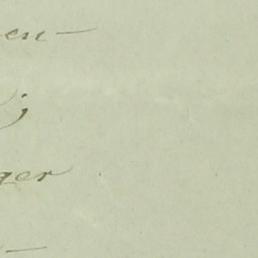 en—
;
ger
—